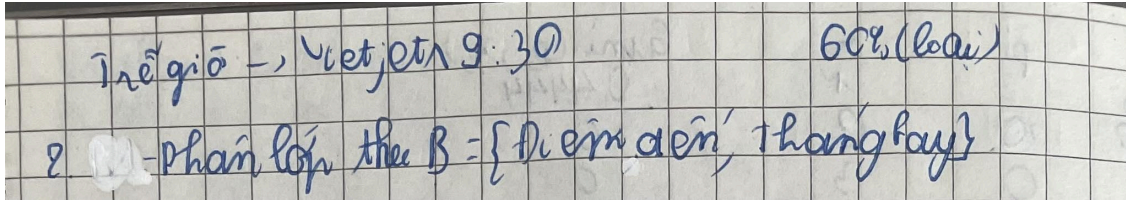 Trễ giờ -> Vietjet ∧ 9:30 60% (loại)
2. - Phân lớp theo B = {Điểm đến, tháng bay}